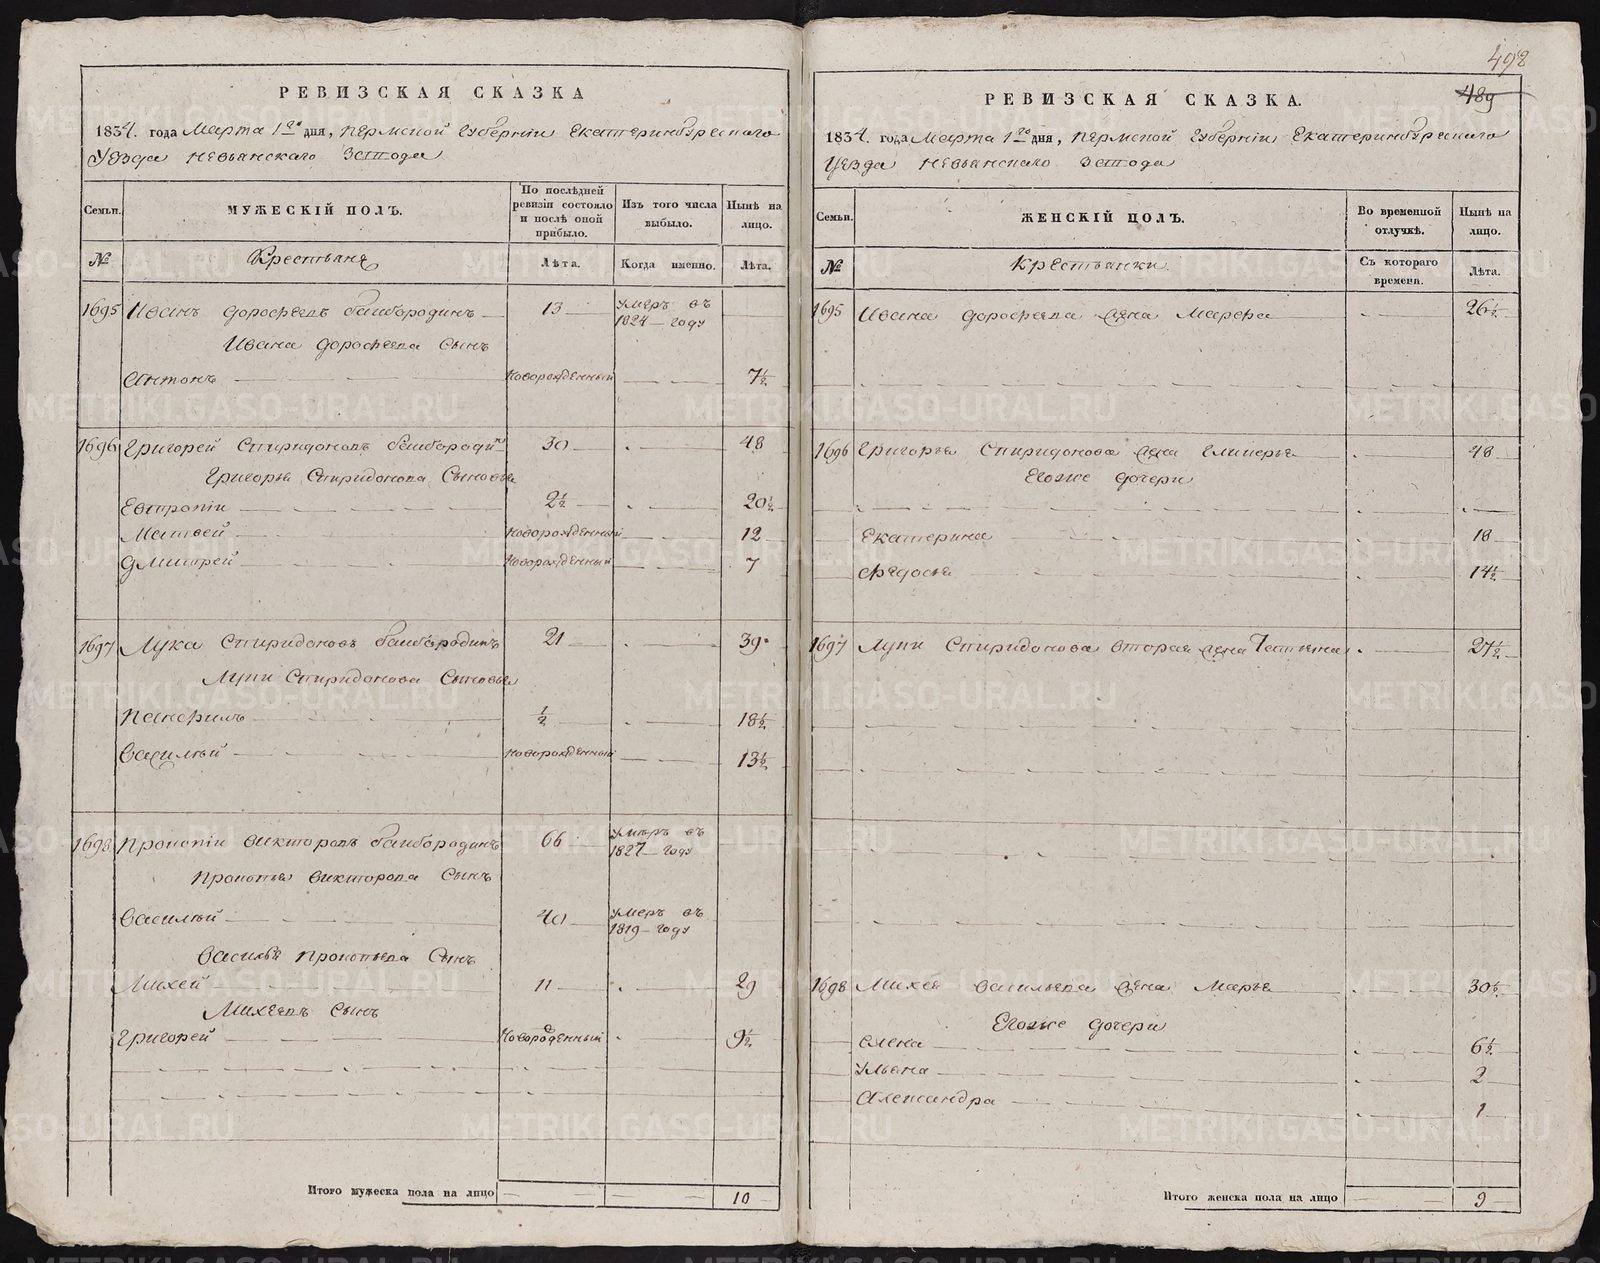 РЕВИЗСКАЯ СКАЗКА
1834. года Марта 1го дня, Пермской Губернiи Екатеринбургскаго
Уѣзда Невьянскаго Завода
Семьи.
МУЖЕСКIЙ ПОЛЪ.
По послѣдней ревизiи состояло и послѣ оной прибыло.
Изъ того числа выбыло.
Нынѣ на лицо.
№
Крестьяне
Лѣта.
Когда именно.
Лѣта.
1695 Иванъ Дорофеевъ Бамбородинъ 13 умеръ въ 1824 году
Ивана Дорофеева Сынъ
Антонъ Новорожденный 7½
1696 Григорей Спиридоновъ Бамбородинъ 30 48
Григорья Спиридонова Сыновья
Евтропiи 2½ 20½
Матвей Новорожденный 12
Дмитрей Новорожденный 7
1697 Лука Спиридоновъ Бамбородинъ 21 39
Луки Спиридонова Сыновья
Панфилъ ½ 18½
Василiй Новорожденный 13½
1698 Прокопiи Викторовъ Бамбородинъ 66 умеръ въ 1827 году
Прокопья Викторова Сынъ
Василiй 40 умеръ въ 1819 году
Василья Прокопьева Сынъ
Михей 11 29
Михеевъ Сынъ
Григорей Новорожденный 9½
Итого мужеска пола на лицо 10
498
489
РЕВИЗСКАЯ СКАЗКА.
1834. года Марта 1го дня, Пермской Губернiи Екатеринбургскаго
Уѣзда Невьянскаго Завода
Семьи.
ЖЕНСКIЙ ПОЛЪ.
Во временной отлучкѣ.
Нынѣ на лицо.
№
Крестьянки.
Съ котораго времени.
Лѣта.
1695 Ивана Дорофеева жена Марфа 26½
1696 Григорья Спиридонова жена Гликерья 48
Егоже дочери
Екатерина 18
Федосья 14½
1697 Луки Спиридонова вторая жена Татьяна 27½
1698 Михея Васильева жена Марья 30½
Егоже дочери
Елена 6½
Ульяна 2
Александра 1
Итого женска пола на лицо 9
METRIKI.GASO-URAL.RU